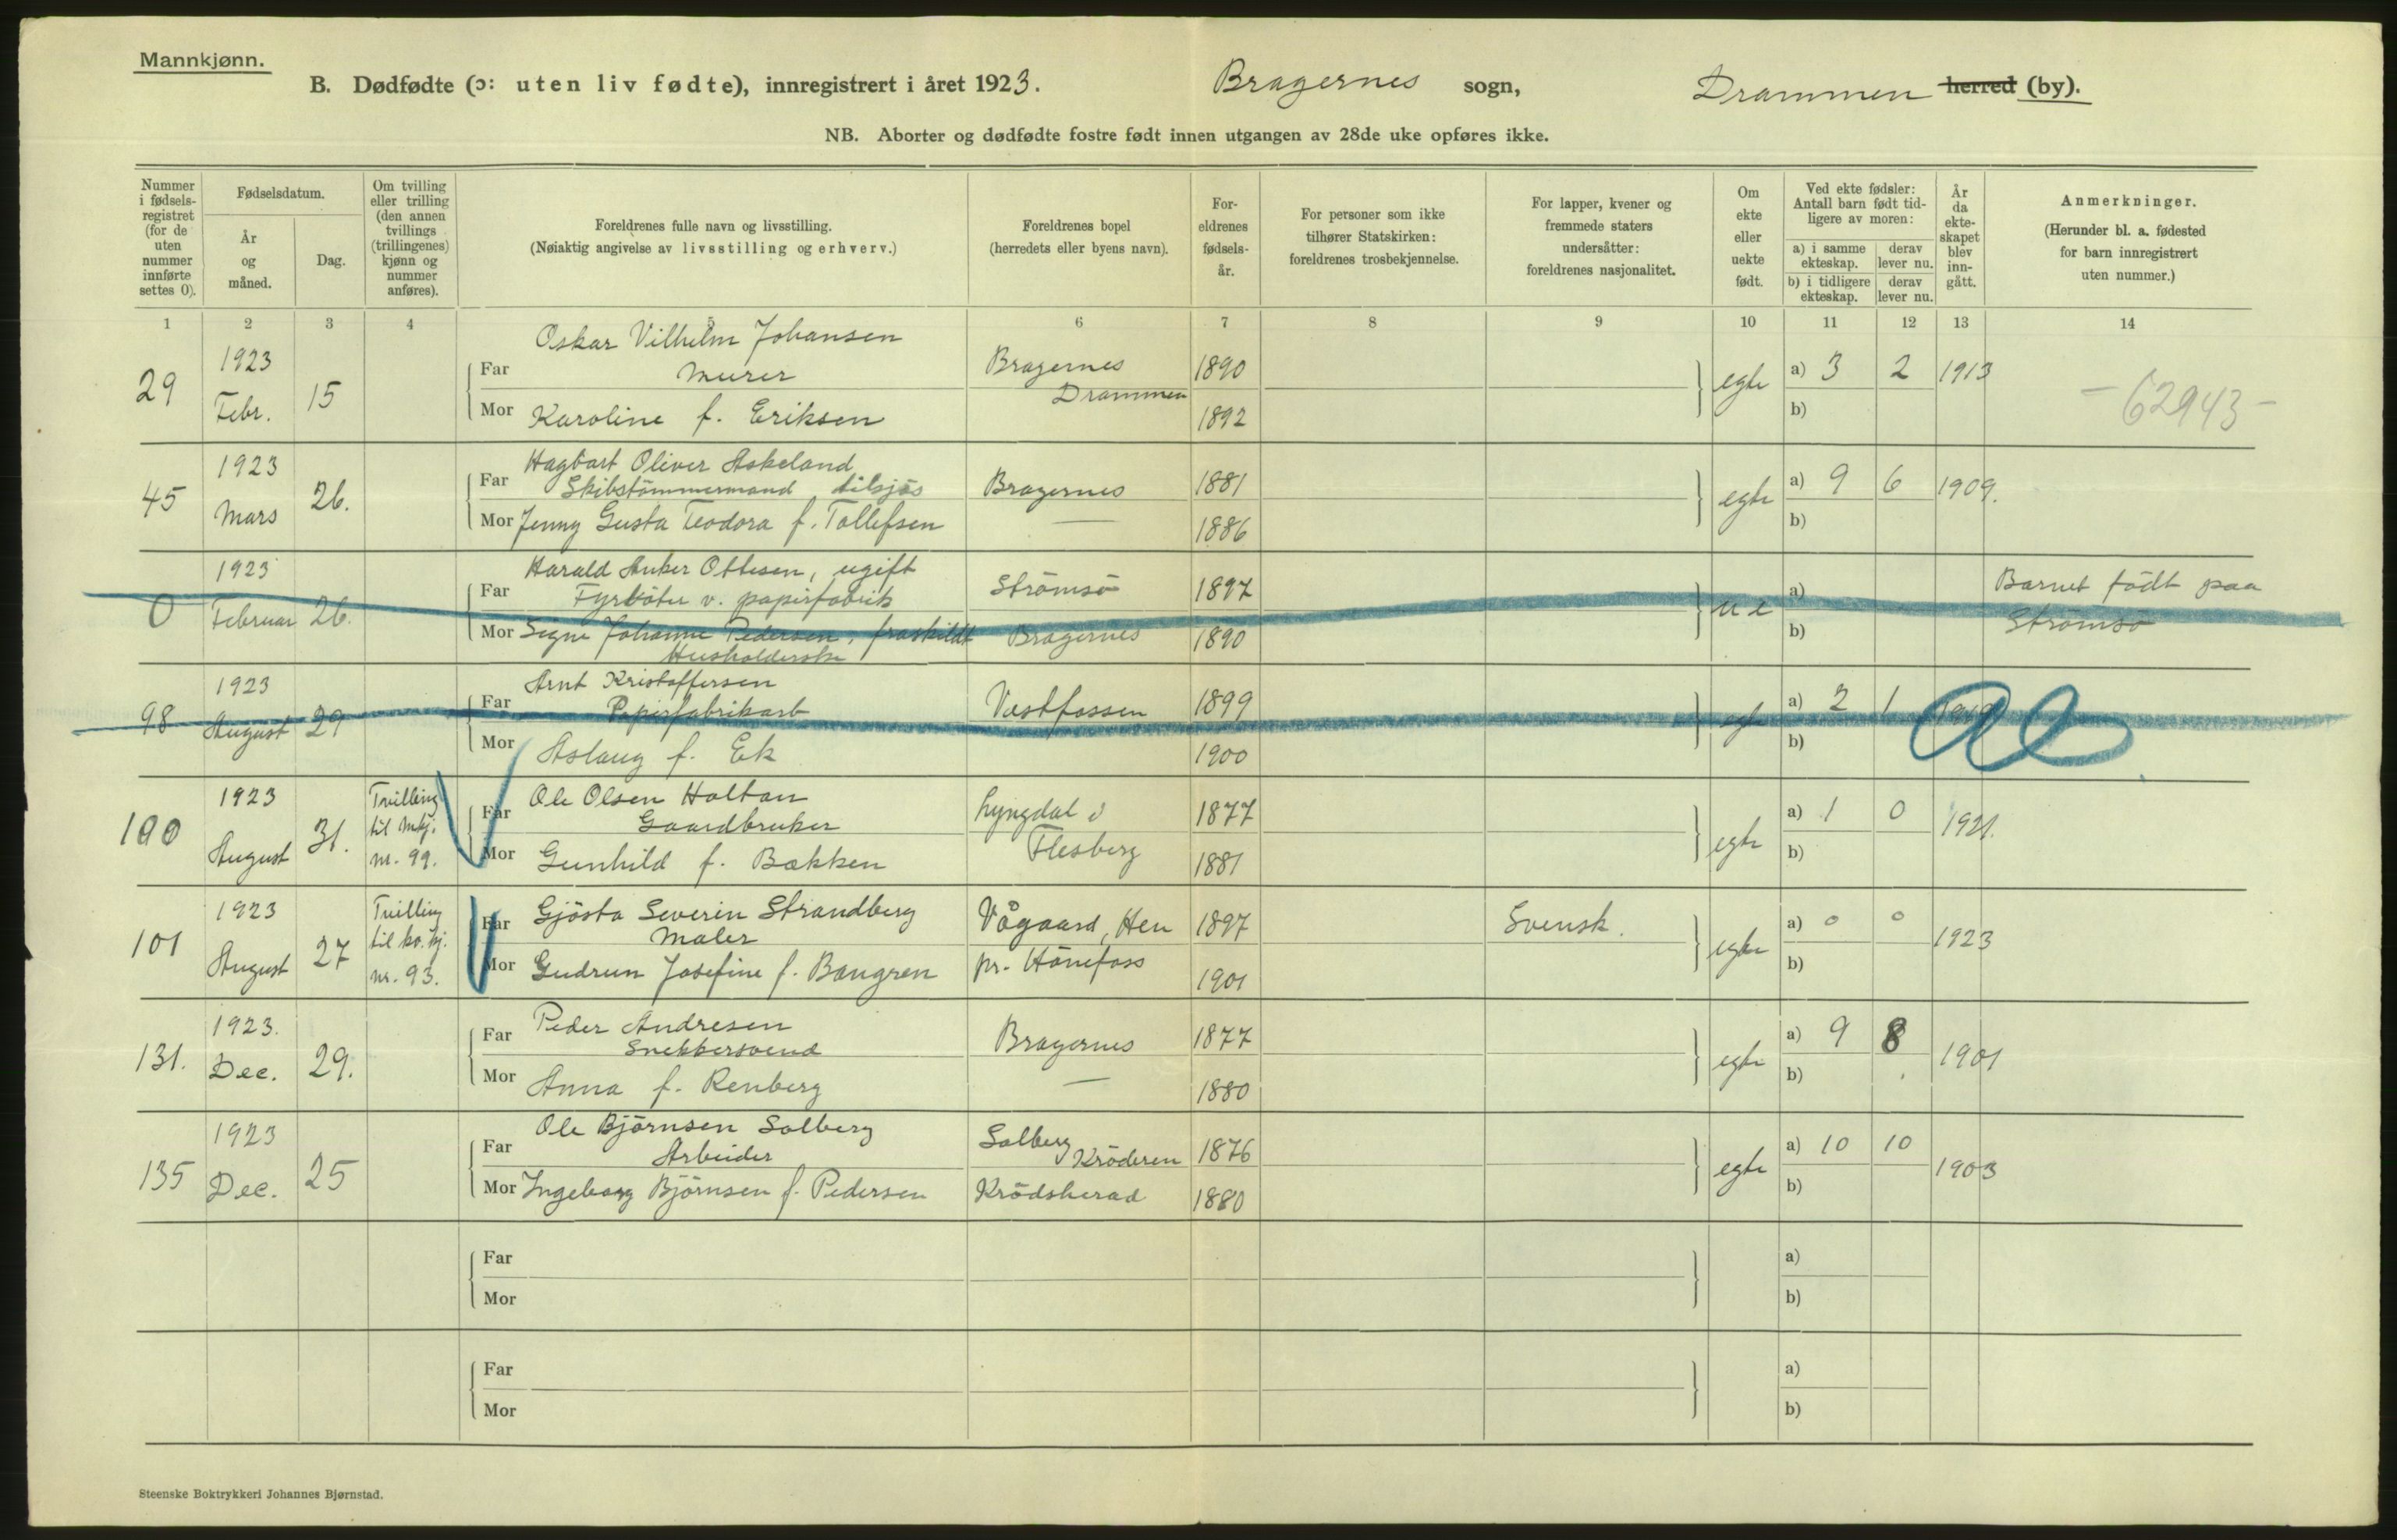 Mannkjønn.
B. Dødfødte (ɔ: uten liv fødte), innregistrert i året 1923. Bragernes sogn, Drammen herred (by).
NB. Aborter og dødfødte fostre født innen utgangen av 28de uke opføres ikke.
Nummer i fødsels-registret (for de uten nummer innførte settes 0).
Fødselsdatum.
År og måned.
Dag.
Om tvilling eller trilling (den annen tvillings (trillingenes) kjønn og nummer anføres).
Foreldrenes fulle navn og livsstilling.
(Nøiaktig angivelse av livsstilling og erhverv.)
Foreldrenes bopel
(herredets eller byens navn).
For-eldrenes fødsels-år.
For personer som ikke tilhører Statskirken: foreldrenes trosbekjennelse.
For lapper, kvener og fremmede staters undersåtter: foreldrenes nasjonalitet.
Om ekte eller uekte født.
Ved ekte fødsler: Antall barn født tid-ligere av moren:
a) i samme ekteskap.
derav lever nu.
b) i tidligere ekteskap.
derav lever nu.
År da ekte-skapet blev inn-gått.
Anmerkninger.
(Herunder bl. a. fødested for barn innregistrert uten nummer.)
1 2 3 4 5 6 7 8 9 10 11 12 13 14
Oskar Vilhelm Johansen
29 1923 Febr. 15 Far Murer Bragernes Drammen 1890 egte a) 3 2 1913 -62943-
Mor Karoline f. Eriksen 1892 b)
Hagbart Oliver Askeland
45 1923 Mars 26. Far Skibstömmermand tilsjös Bragernes 1881 egte a) 9 6 1909.
Mor Jenny Gusta Teodora f. Tollefsen — 1886 b)
Harald Anker Ottesen, ugift
0 1923 Februar 26. Far Fyrböter v. papirfabrik Strömsö 1897 u e a) Barnet födt paa Strömsö
Mor Signe Johanne Pedersen, fraskildt Bragernes 1890 b)
Husholderske
Arnt Kristoffersen
98 1923 August 29 Far Papirfabrikarb Vestfossen 1899 egte a) 2 1
Mor Aslaug f. Ek 1900 b)
Ole Olsen Holtan
100 1923 August 31. Tvilling til mkj. nr. 99. Far Gaardbruker Lyngdal i Flesberg 1877 egte a) 1 0 1921.
Mor Gunhild f. Bækken 1881 b)
Gjösta Severin Strandberg
101 1923 August 27 Tvilling til kv. kj. nr. 93. Far Maler Vågaard, Hen pr. Hönefoss 1897 Svensk. egte a) 0 0 1923
Mor Gudrun Josefine f. Bangren 1901 b)
Peder Andresen
131. 1923. Dec. 29. Far Snekkersvend Bragernes 1877 egte a) 9 8 1901
Mor Anna f. Renberg — 1880 b)
Ole Björnsen Solberg
135 1923 Dec. 25 Far Arbeider Solberg Kröderen 1876 egte a) 10 10 1903
Mor Ingeborg Björnsen f. Pedersen Krödsherad 1880 b)
Far a)
Mor b)
Far a)
Mor b)
Steenske Boktrykkeri Johannes Bjørnstad.